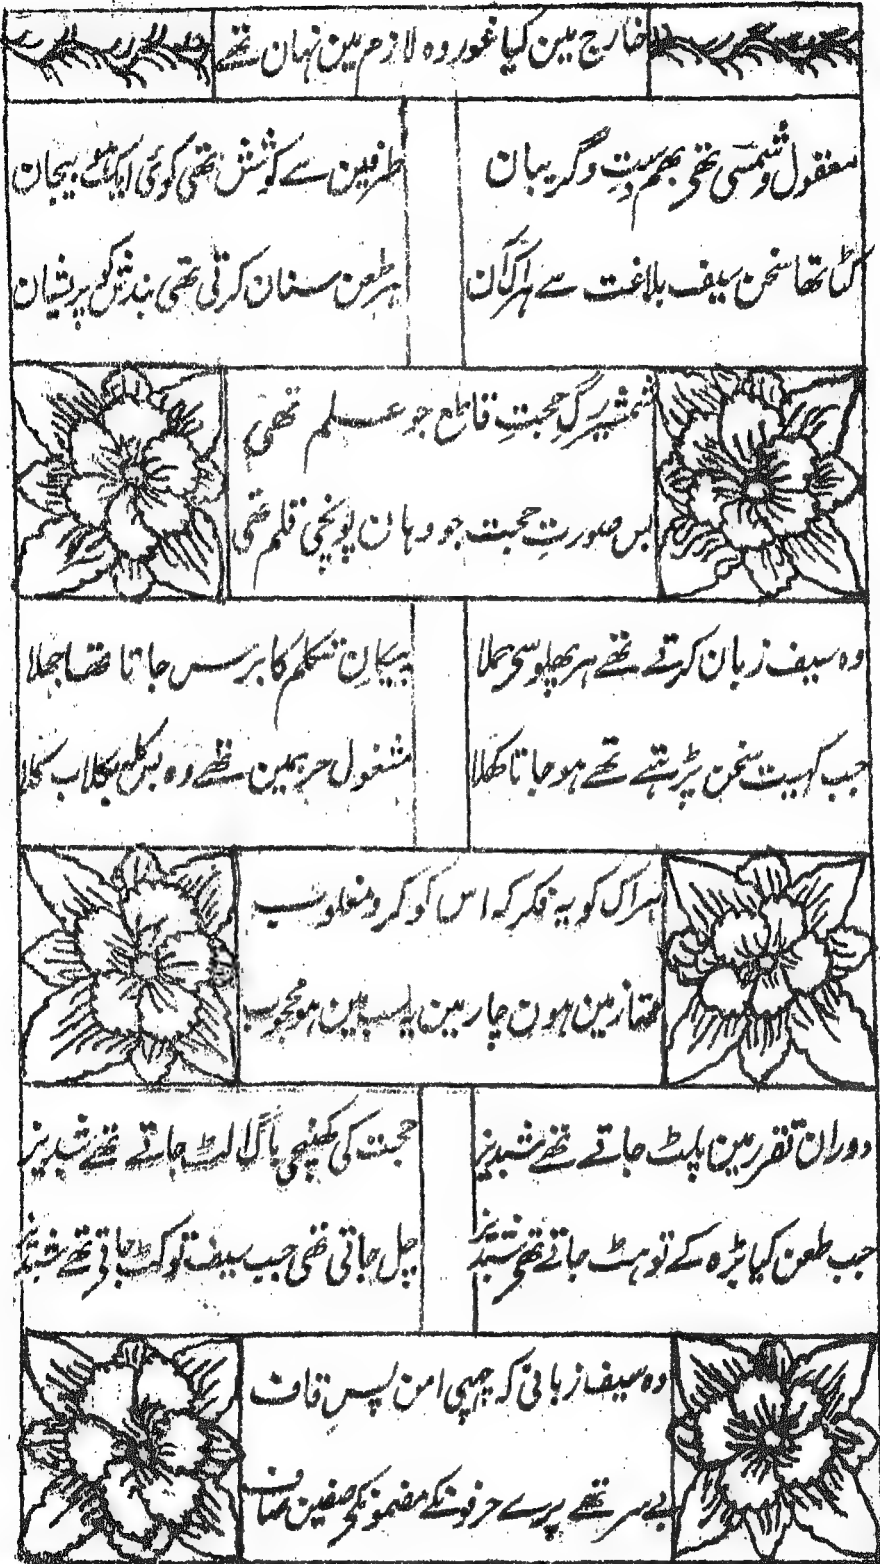 خارج مین کیا غور وہ لازم مین نہان تھے
معقول و شمسی تھے بہم دستِ و گریبان
طرفین سے کوشش تھی کوئی ایکاٹے بیجان
کٹا تھا سخن سیف بلاغت سے ہراک آن
ہر طعن سنان کرتی تھی بندش کو پریشان
شمشیر رگِ حجتِ قاطع جو علم تھی
بس صورتِ حجت جو وہان پونچی قلم تھی
وہ سیف زبان کرتے تھے ہر پہلو سے حملا
پیکانِ تکلم کا برس جاتا تھا جملا
جب کہیت سخن پڑہتے تھے ہو جاتا کھلا
مشغول حرہمین تھے وہ بس نکلا اب نکلا
ہراک کو یہ فکر کہ اس کو کرو مغلوب
ممتاز مین ہون چار مین یہ سب مین ہو محجوب
دوران تقریر مین پلٹ جاتے تھے شبدیز
حجت کی کھنچی باگ الٹ جاتے تھے شبدیز
جب طعن کیا بڑہ کے تو ہٹ جاتے تھے شبدیز
چل جاتی تھی جب سیف تو کٹ جاتے تھے شبدیز
وہ سیف زبانی کہ چھپی امن پسِ قاف
بے سر تھے پرے حرفونکے مضمونکے صفین صاف